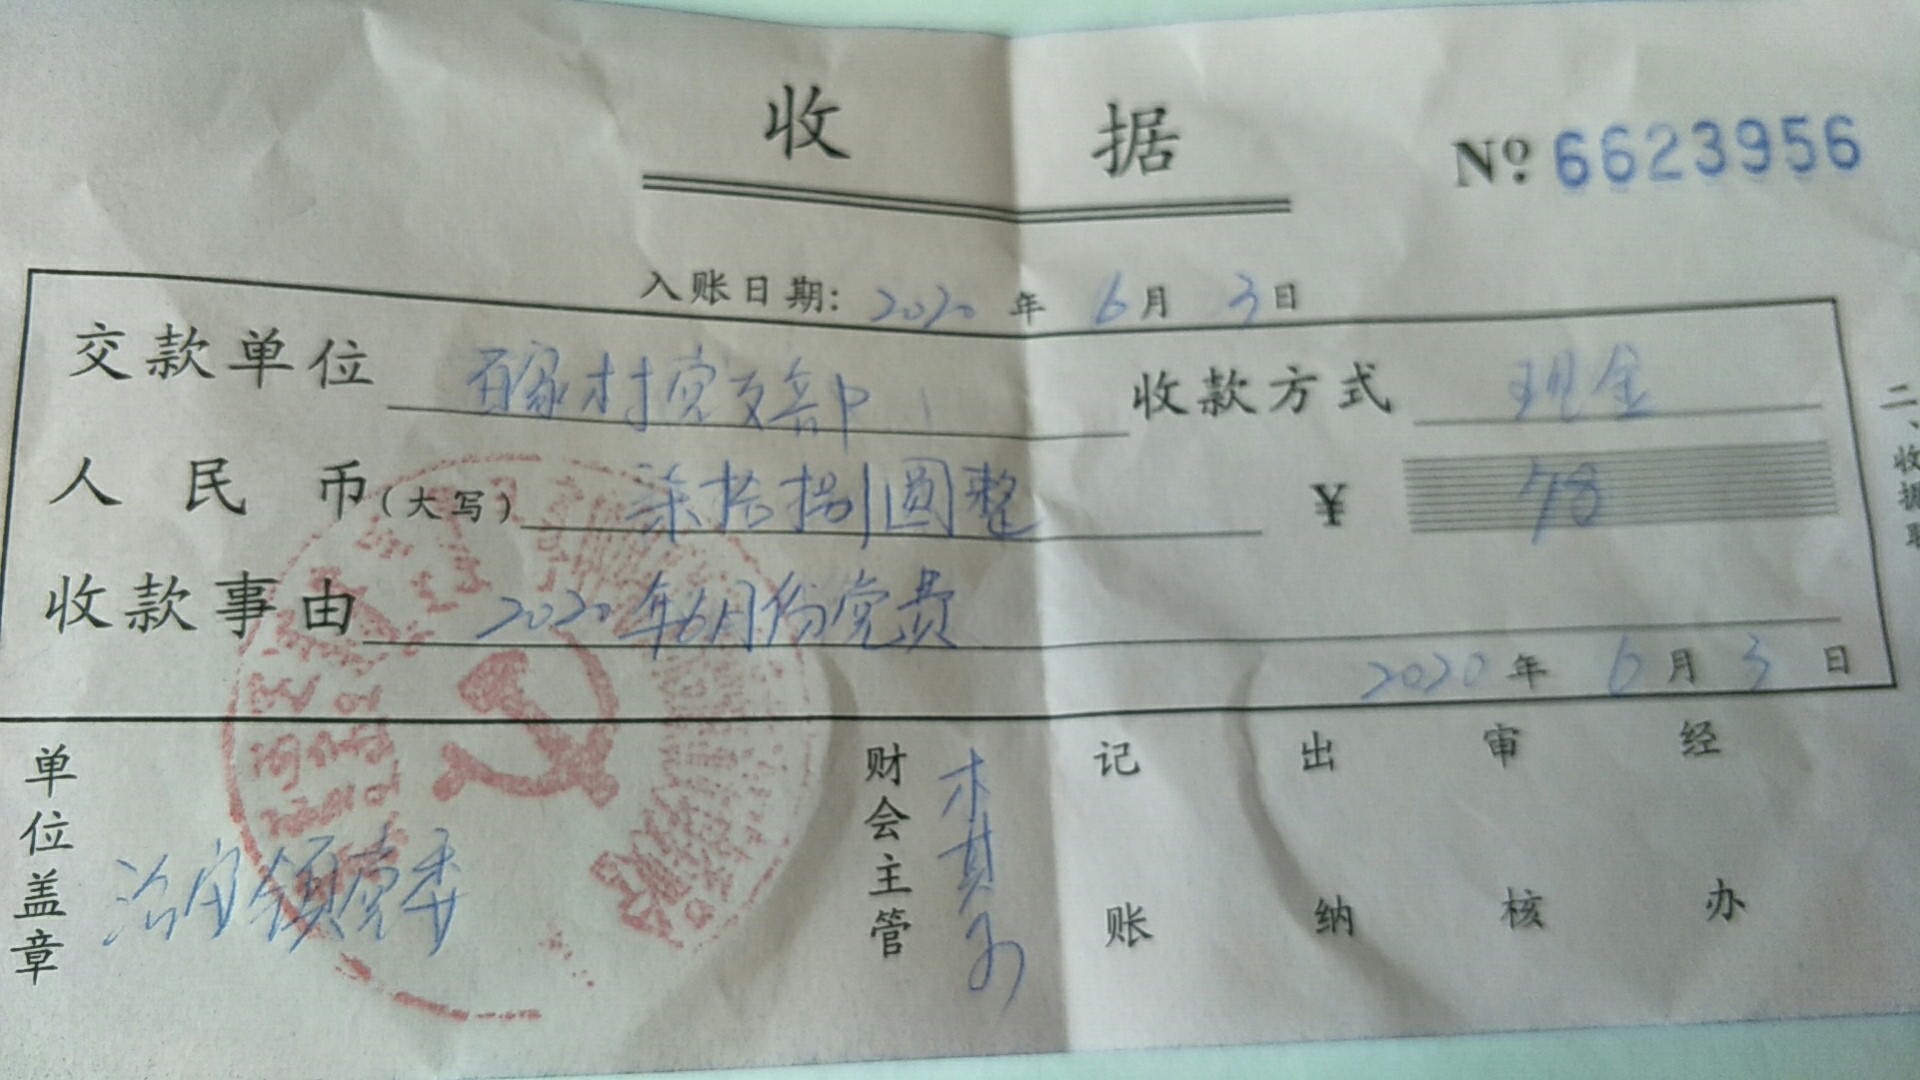 收 据
№ 6623956
入账日期: 2020 年 6 月 3 日
交款单位 百家村党支部 收款方式 现金
人民币(大写) 柒拾捌圆整 ¥ 78
收款事由 2020年6月份党费
2020 年 6 月 3 日
单位盖章 党委
财会主管
记账
出纳
审核
经办
二、收据联